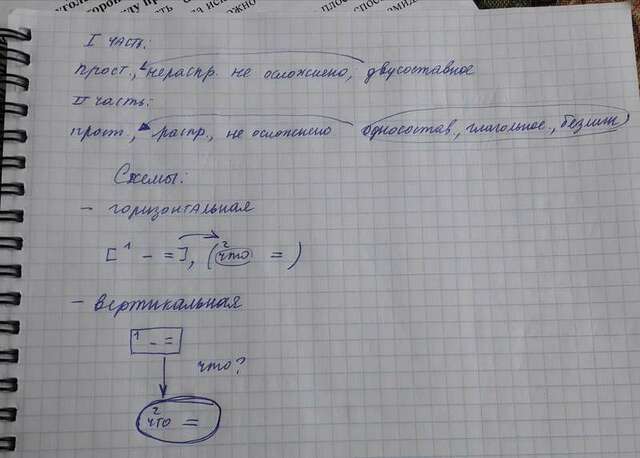 I часть:
прост., нераспр. не осложнено, двусоставное
II часть:
прост., распр., не осложнено односостав., глагольное., безличн
Схемы:
- горизонтальная
[1 - =], (2 что =)
- вертикальная
1 - =
что?
2
что =